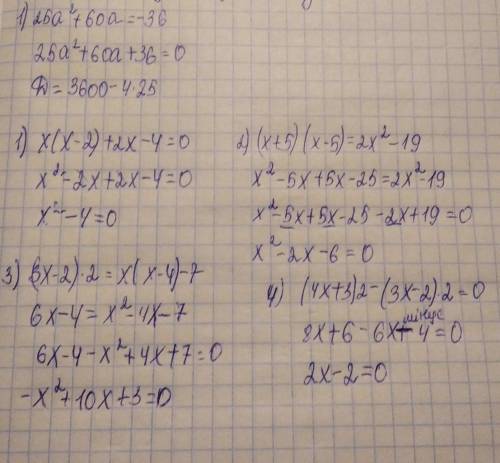 1) 25a²+60a=-36
25a²+60a+36=0
D=3600-4·25
1) x(x-2)+2x-4=0
x²-2x+2x-4=0
x²-4=0
2) (x+5)(x-5)=2x²-19
x²-5x+5x-25=2x²-19
x²-5x+5x-25-2x+19=0
x²-2x-6=0
3) (3x-2)·2=x(x-4)-7
6x-4=x²-4x-7
6x-4-x²+4x+7=0
-x²+10x+3=0
4) (4x+3)2-(3x-2)·2=0
мінус
8x+6-6x-4=0
2x-2=0